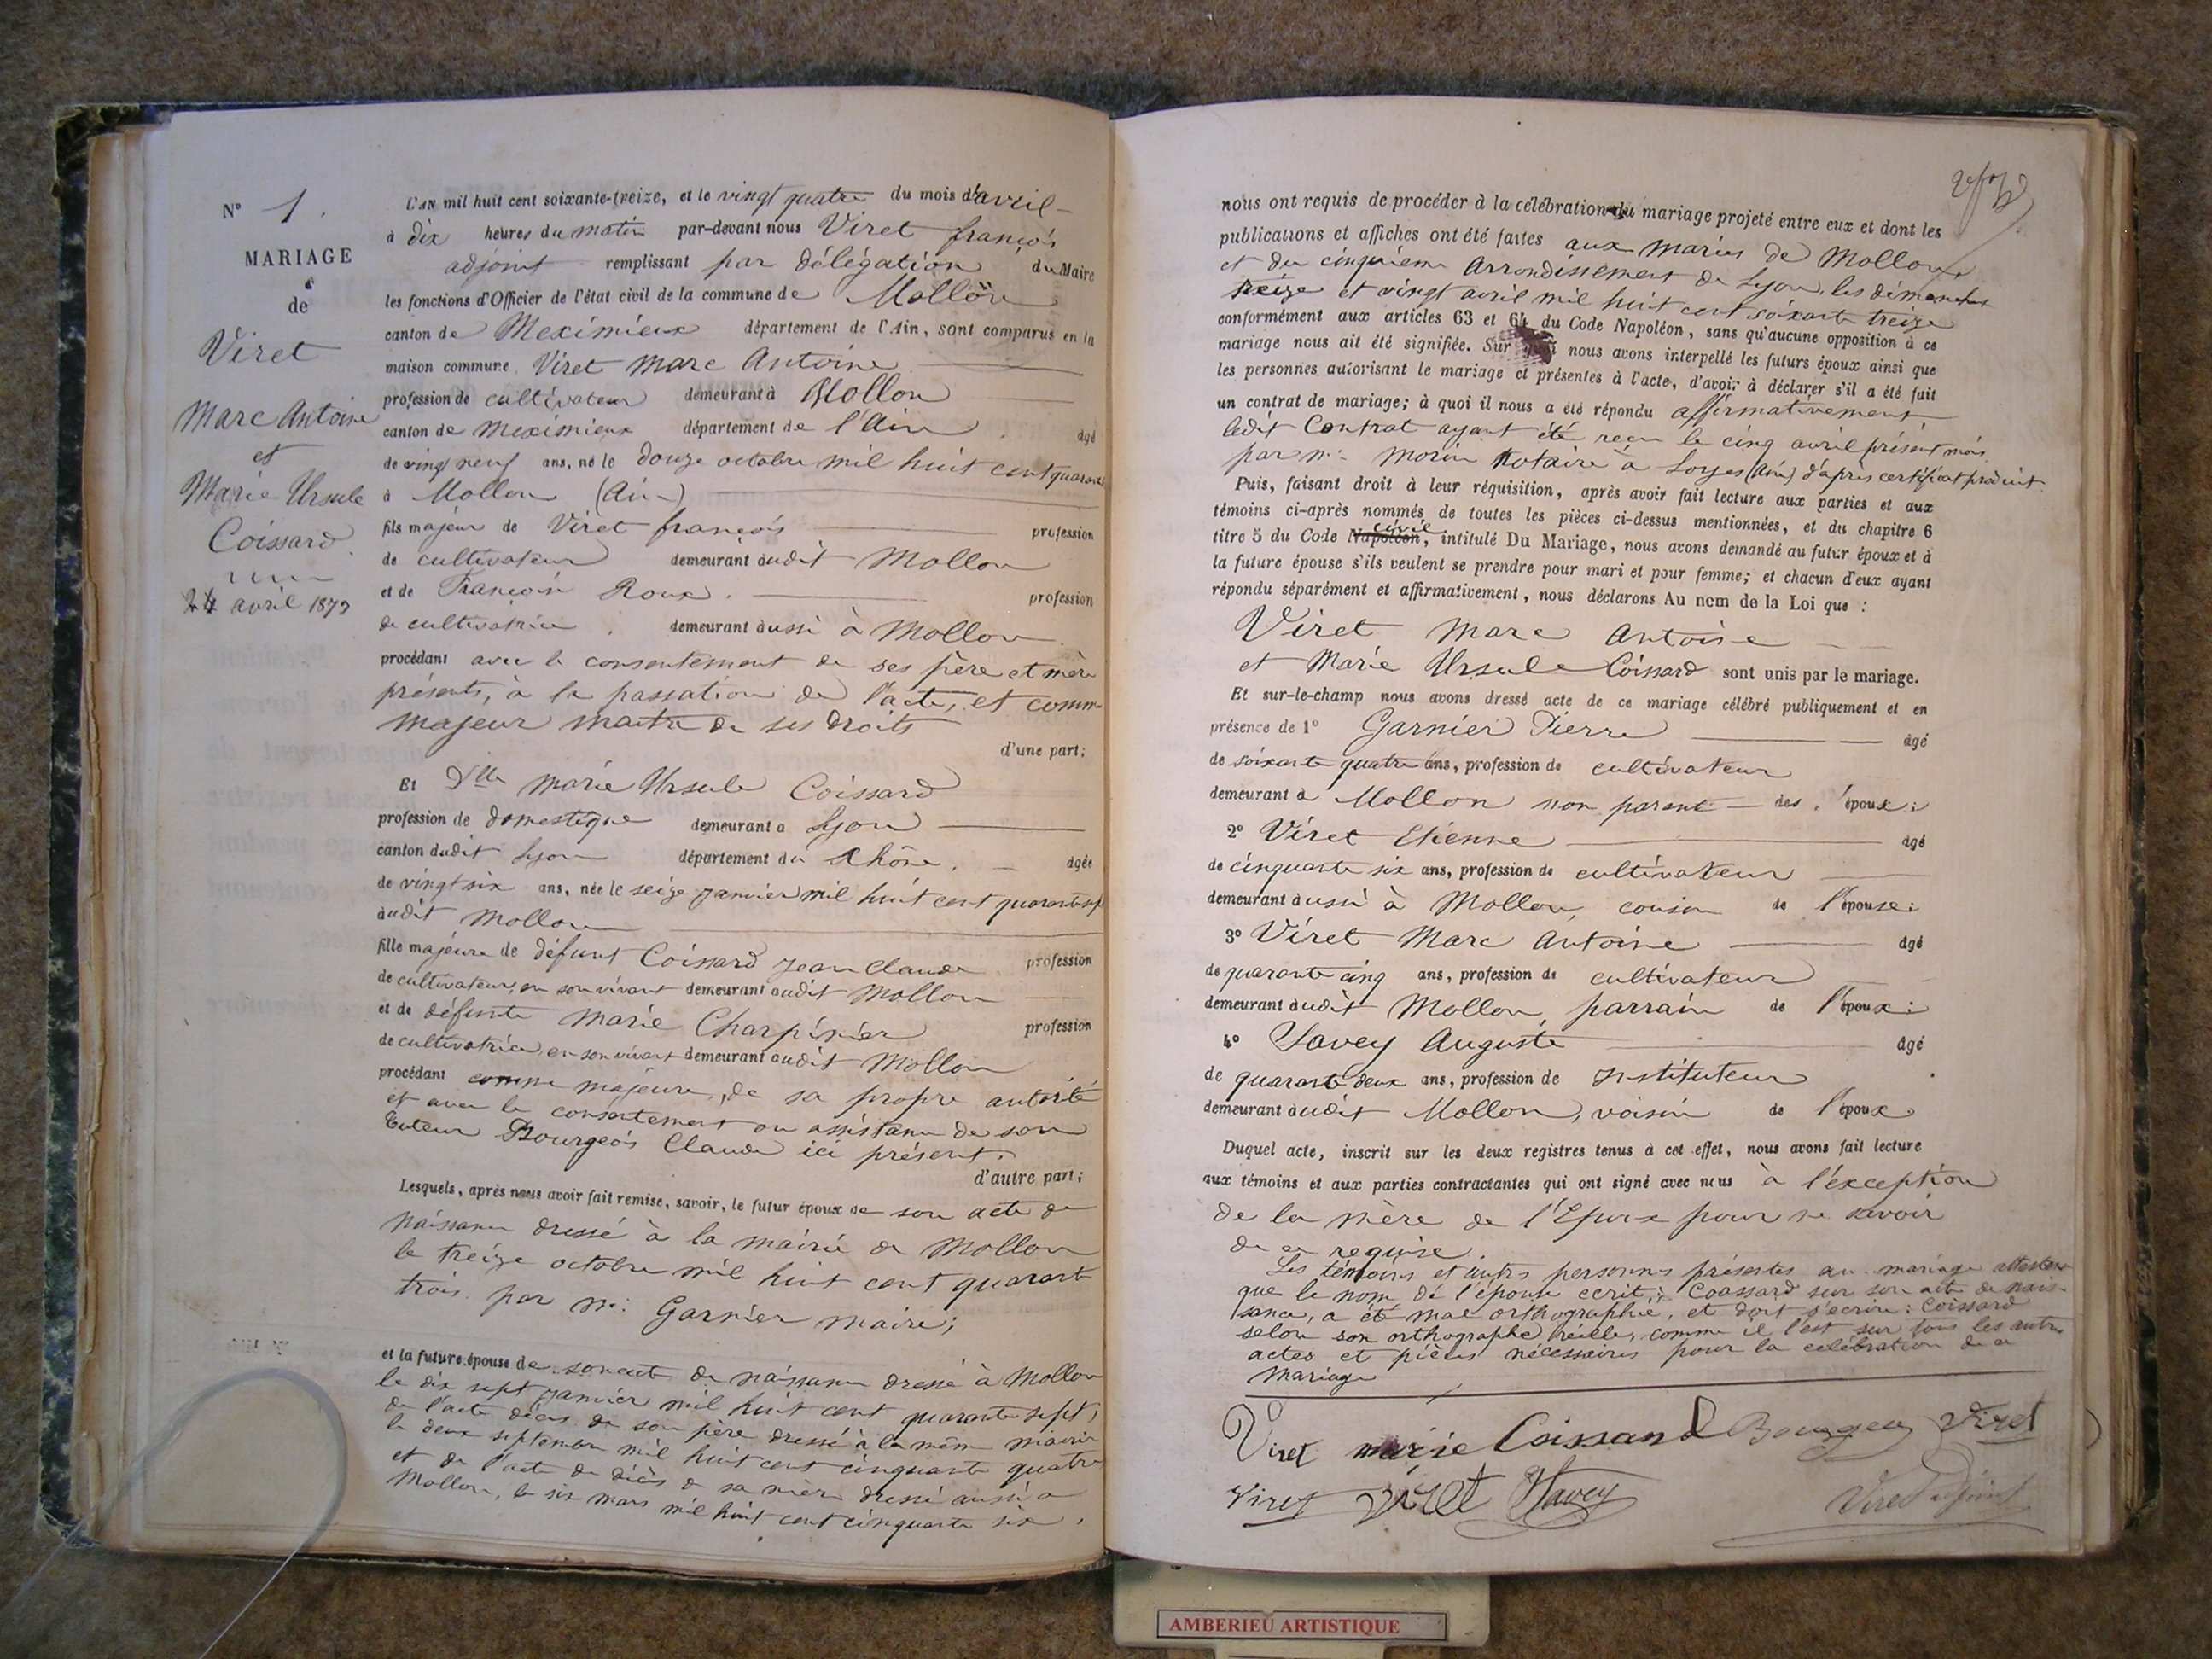 N° 1.
MARIAGE
de
Viret
Marc Antoine
et
Marie Ursule
Coissard
24 avril 1873
L'an mil huit cent soixante-treize, et le vingt quatre du mois d'avril
à dix heures du matin par-devant nous Viret françois
adjoint remplissant par délégation du Maire
les fonctions d'Officier de l'état civil de la commune de Mollon
canton de Meximieux département de l'Ain, sont comparus en la
maison commune Viret Marc Antoine
profession de cultivateur demeurant à Mollon
canton de Meximieux département de l'Ain. âgé
de vingt neuf ans, né le douze octobre mil huit cent quarante
à Mollon (Ain)
fils majeur de Viret françois profession
de cultivateur demeurant audit Mollon
et de Roux. profession
de cultivatrice. demeurant aussi à Mollon
procédant avec le consentement de ses père et mère
présents, à la passation de l'acte, et comme
majeur maitre de ses droits
d'une part;
Et Dlle Marie Ursule Coissard
profession de domestique demeurant à Lyon
canton dudit Lyon département du Rhône. âgée
de vingt six ans, née le seize janvier mil huit cent quarante sept
audit Mollon
fille majeure de défunt Coissard Jean Claude profession
de cultivateur, en son vivant demeurant audit Mollon
et de défunte Marie Charpinier profession
de cultivatrice en son vivant demeurant audit Mollon
procédant comme majeure, de sa propre autorité
et avec le consentement ou assistance de son
tuteur Bourgeois Claude ici présent.
d'autre part;
Lesquels, après nous avoir fait remise, savoir, le futur époux de son acte de
naissance dressé à la mairie de Mollon
le treize octobre mil huit cent quarante
trois par mr Garnier maire;
et la future épouse de son acte de naissance dressé à Mollon
le dix sept janvier mil huit cent quarante sept,
de l'acte décès de son père dressé à la même mairie
le deux septembre mil huit cent cinquante quatre
et de l'acte de décès de sa mère dressé aussi à
Mollon, le six mars mil huit cent cinquante six.
nous ont requis de procéder à la célébration du mariage projeté entre eux et dont les
publications et affiches ont été faites aux mairies de Mollon
et du cinquième Arrondissement de Lyon, les dimanches
treize et vingt avril mil huit cent soixante treize
conformément aux articles 63 et 64 du Code Napoléon, sans qu'aucune opposition à ce
mariage nous ait été signifiée. Sur quoi nous avons interpellé les futurs époux ainsi que
les personnes autorisant le mariage et présentes à l'acte, d'avoir à déclarer s'il a été fait
un contrat de mariage; à quoi il nous a été répondu affirmativement
ledit Contrat ayant été reçu le cinq avril présent mois
par me Morin Notaire à Loyes (Ain) d'après certificat produit
Puis, faisant droit à leur réquisition, après avoir fait lecture aux parties et aux
témoins ci-après nommés de toutes les pièces ci-dessus mentionnées, et du chapitre 6
titre 5 du Code Napoléon civil, intitulé Du Mariage, nous avons demandé au futur époux et à
la future épouse s'ils veulent se prendre pour mari et pour femme; et chacun d'eux ayant
répondu séparément et affirmativement, nous déclarons Au nom de la Loi que :
Viret Marc Antoine
et Marie Ursule Coissard sont unis par le mariage.
Et sur-le-champ nous avons dressé acte de ce mariage célébré publiquement et en
présence de 1° Garnier Pierre âgé
de soixante quatre ans, profession de cultivateur
demeurant à Mollon non parent des époux;
2° Viret Etienne âgé
de cinquante six ans, profession de cultivateur
demeurant aussi à Mollon, cousin de l'épouse;
3° Viret Marc Antoine âgé
de quarante cinq ans, profession de cultivateur
demeurant audit Mollon, parrain de l'époux;
4° Savey Auguste âgé
de quarante deux ans, profession de Instituteur
demeurant audit Mollon, voisin de l'époux
Duquel acte, inscrit sur les deux registres tenus à cet effet, nous avons fait lecture
aux témoins et aux parties contractantes qui ont signé avec nous à l'exception
de la mère de l'Epoux pour ne savoir
de ce requise.
Les témoins et autres personnes présentes au mariage attestent
que le nom de l'épouse écrit: Coassard sur son acte de nais-
sance, a été mal orthographié, et doit s'écrire: Coissard
selon son orthographe réelle, comme il l'est sur tous les autres
actes et pièces nécessaires pour la célébration de ce
Mariage
Viret marie Coissard Bourgeois Viret
Viret Viret Savey Viret adjoint
AMBERIEU ARTISTIQUE